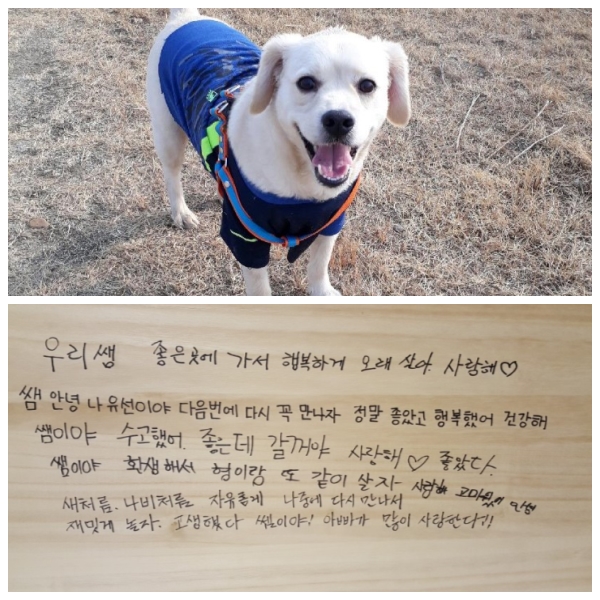 우리쌤 좋은곳에 가서 행복하게 오래 살아 사랑해♡
쌤 안녕 나 유선이야 다음번에 다시 꼭 만나자 정말 좋았고 행복했어 건강해
쌤이야 수고했어. 좋은데 갈꺼야 사랑해♡ 좋았다.
쌤이야 환생해서 형이랑 또 같이 살자 사랑해 고마웠어 안녕
새처름. 나비처름 자유롭게 나중에 다시 만나서
재밋게 놀자. 고생했다 쌤이야! 아빠가 많이 사랑한다!!